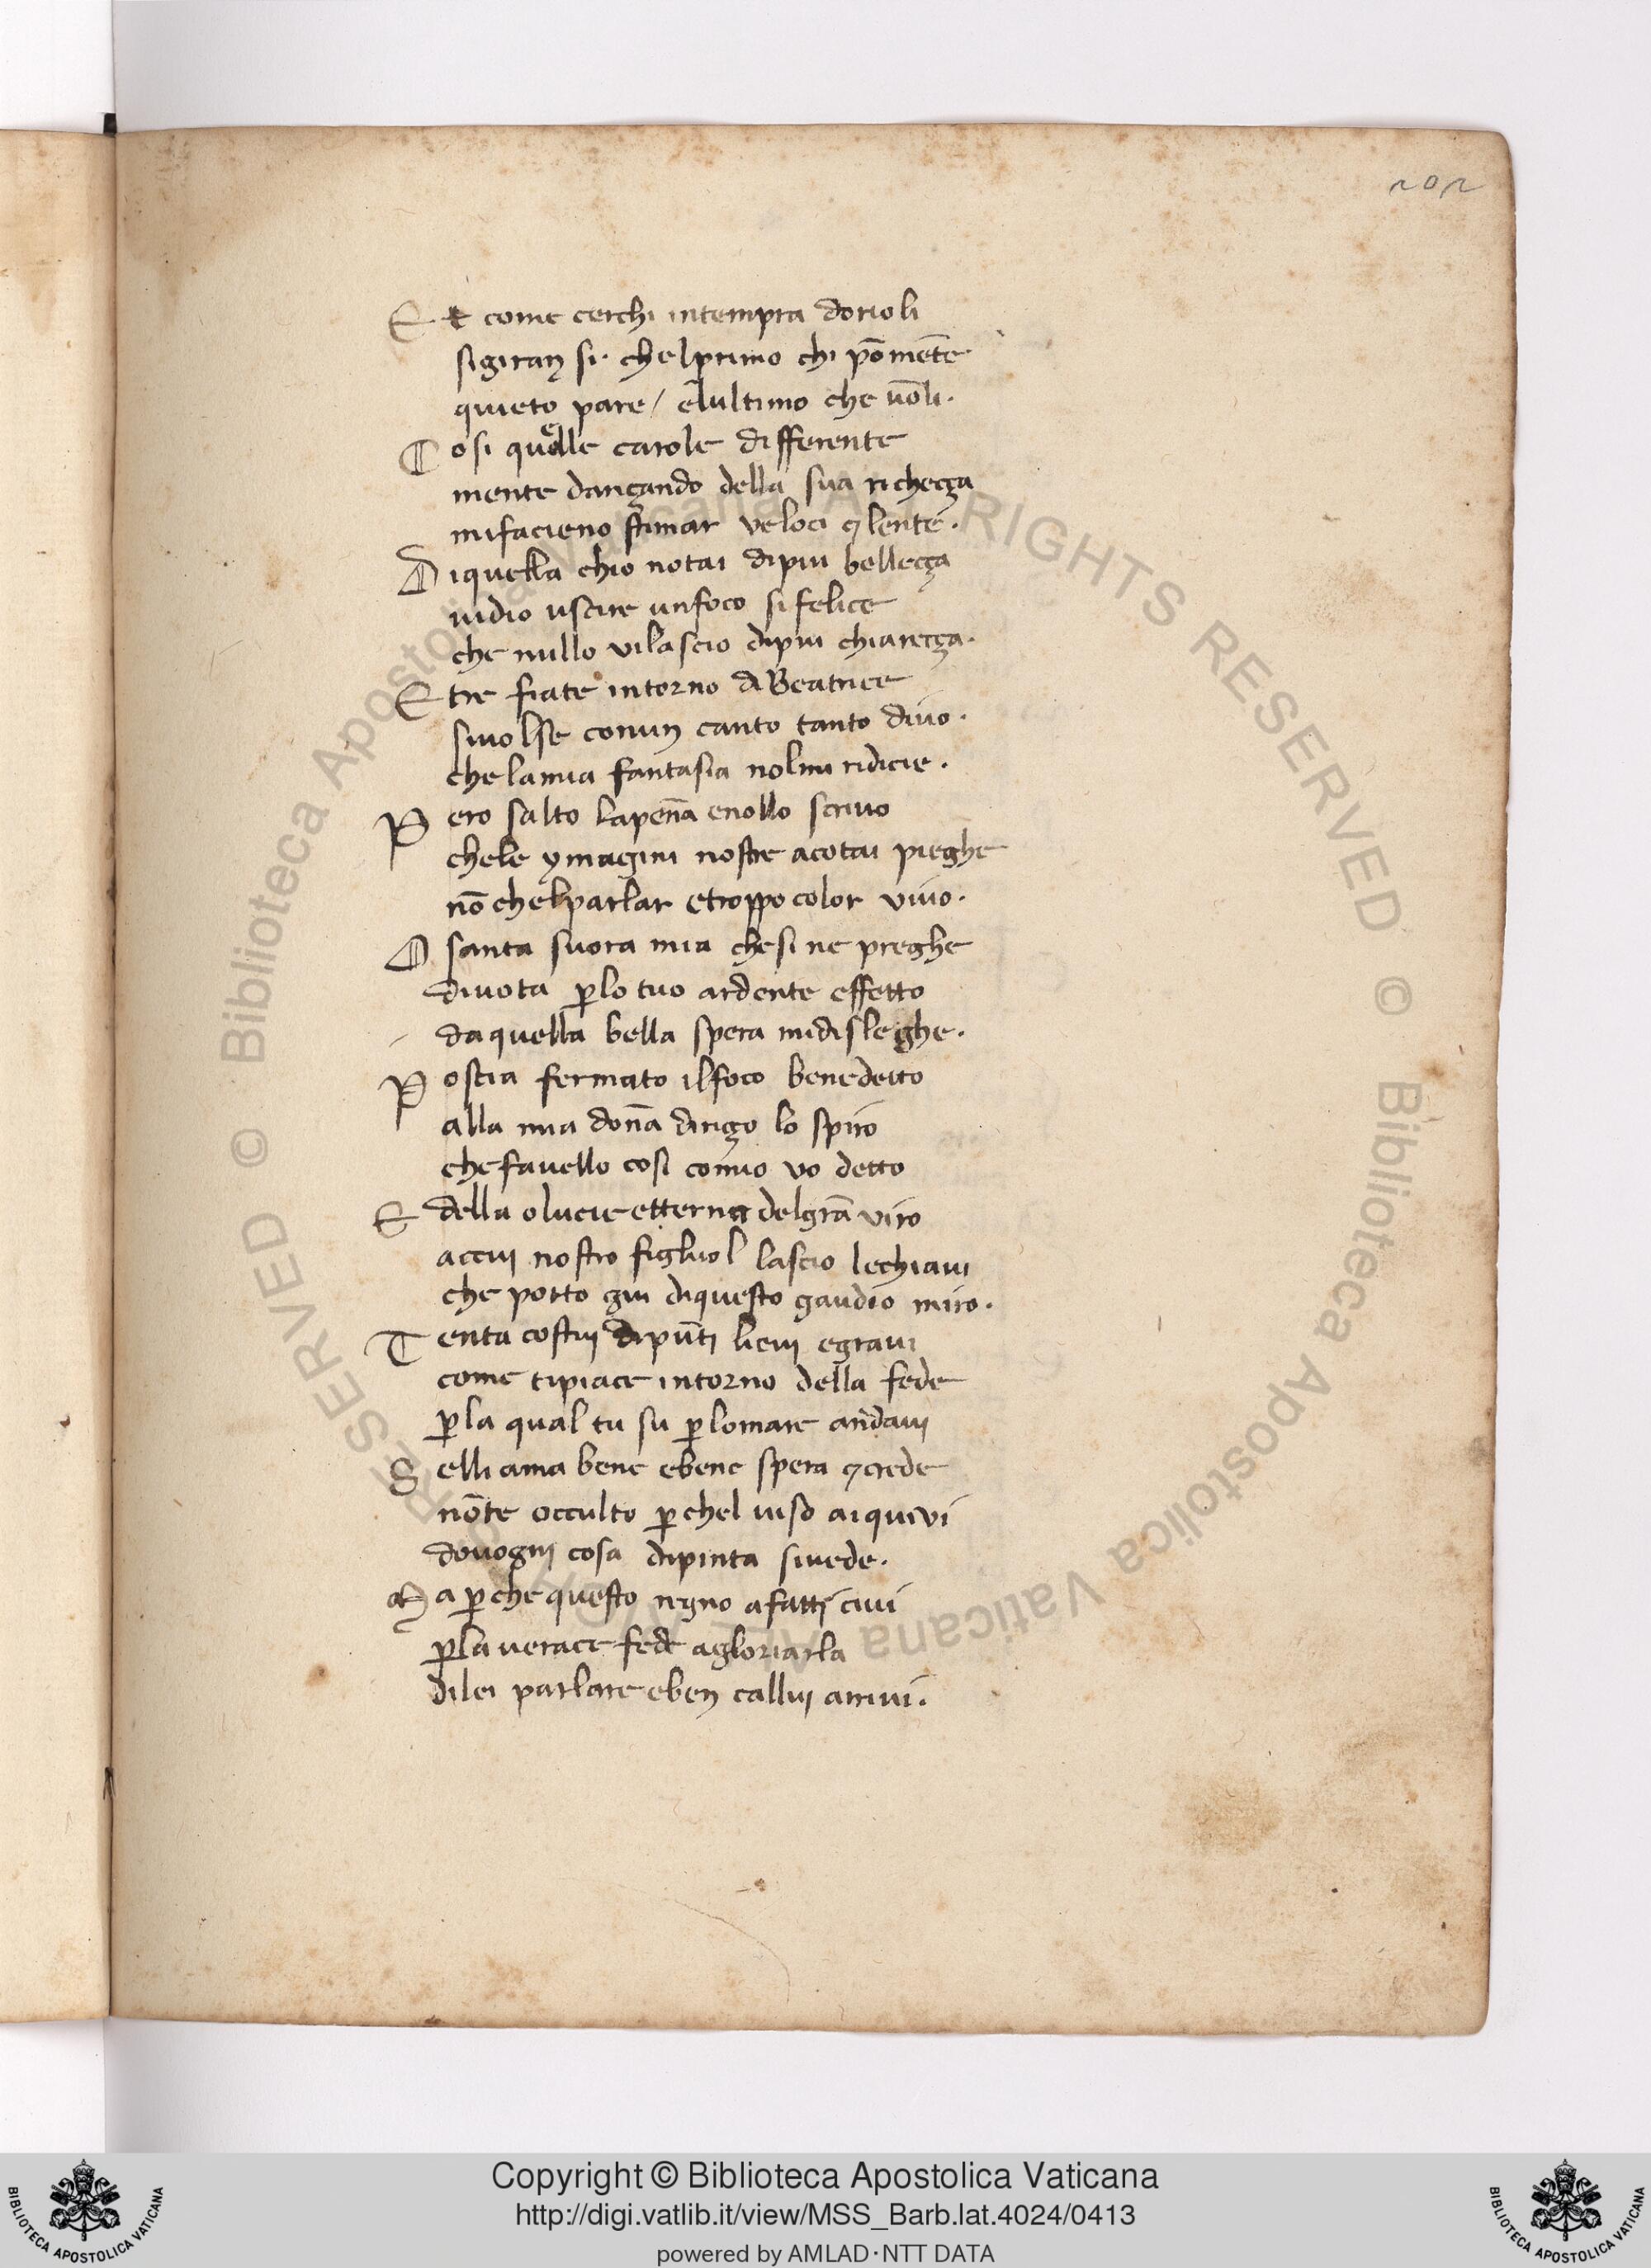 202
E t come cerchi intempra dorioli
sigiran si· chelprimo chi põ mẽte
quieto pare / elultimo che uoli·
C osi quelle carole differente
mente dançando della sua richeçça
mifacieno stimar veloci ⁊ lente·
D iquella chio notai dipiu belleçça
uidio uscire unfoco sifelice
che nullo vilascio dipiu chiareçça·
E tre fiate intorno di Beatrice
siuolse conun canto tanto diuo·
chelamia fantasia nolmi ridicie·
P ero salto lapen̄a enollo scriuo
chele ymagini nostre acotai pieghe
nō chelparlar etroppo color viuo·
O santa suora mia chesi ne preghe
diuota ꝑlo tuo ardente effetto
da quella bella spera midisleghe·
P oscia fermato ilfoco benedetto
alla mia don̄a dirigo lo spiro
chefauello cosi comio vo detto
E della o lucie etterna delgrā viro
accui nostro figluol lascio lechiaui
che porto giu diquesto gaudio miro·
T enta costui dipūti lieui egraui
come tipiace intorno della fede
ꝑla qual tu su ꝑlomare andaui
S elli ama bene ebene spera ⁊crede
nōte occulto ꝑchel uiso ai quivi
douogni cosa dipinta siuede·
M a ꝑche questo regno a fatti ciui
ꝑla uerace fede agloriarla
dilei parlare eben callui arriui·
© Biblioteca Apostolica Vaticana ALL RIGHTS RESERVED © Biblioteca Apostolica Vaticana ALL RIGHTS RESERVED
Copyright © Biblioteca Apostolica Vaticana
http://digi.vatlib.it/view/MSS_Barb.lat.4024/0413
powered by AMLAD·NTT DATA
BIBLIOTECA APOSTOLICA VATICANA
BIBLIOTECA APOSTOLICA VATICANA